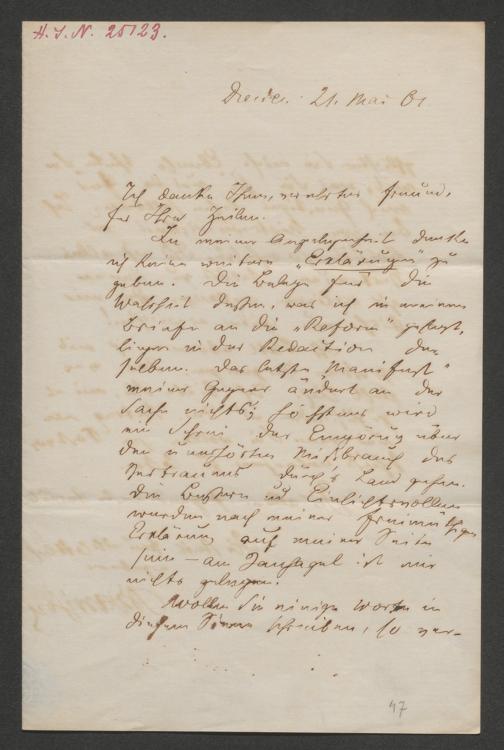 H. I. N. 25123.
Dresden. 21. Mai 61
Ich danke Ihnen, verehrter Freund,
für Ihre Zeilen.
In meiner Angelegenheit denke
ich keine weitern „Erklärungen" zu
geben. Die Belege für die
Wahrheit dessen, was ich in meinem
Briefe an die „Reform" gesagt,
liegen in der Redaction der-
selben. Das letzte „Manifest"
meiner Gegner ändert an der
Sache nichts; höchstens wird
ein Schrei der Empörung über
den unerhörten Mißbrauch des
Vertrauens durch's Land gehen.
Die Bessern und Einsichtsvollen
werden nach meiner freimüthigen
Erklärung auf meiner Seite
sein – am Janhagel ist mir
nichts gelegen.
Wollen Sie einige Worte in
diesem Sinne schreiben, so ver-
47